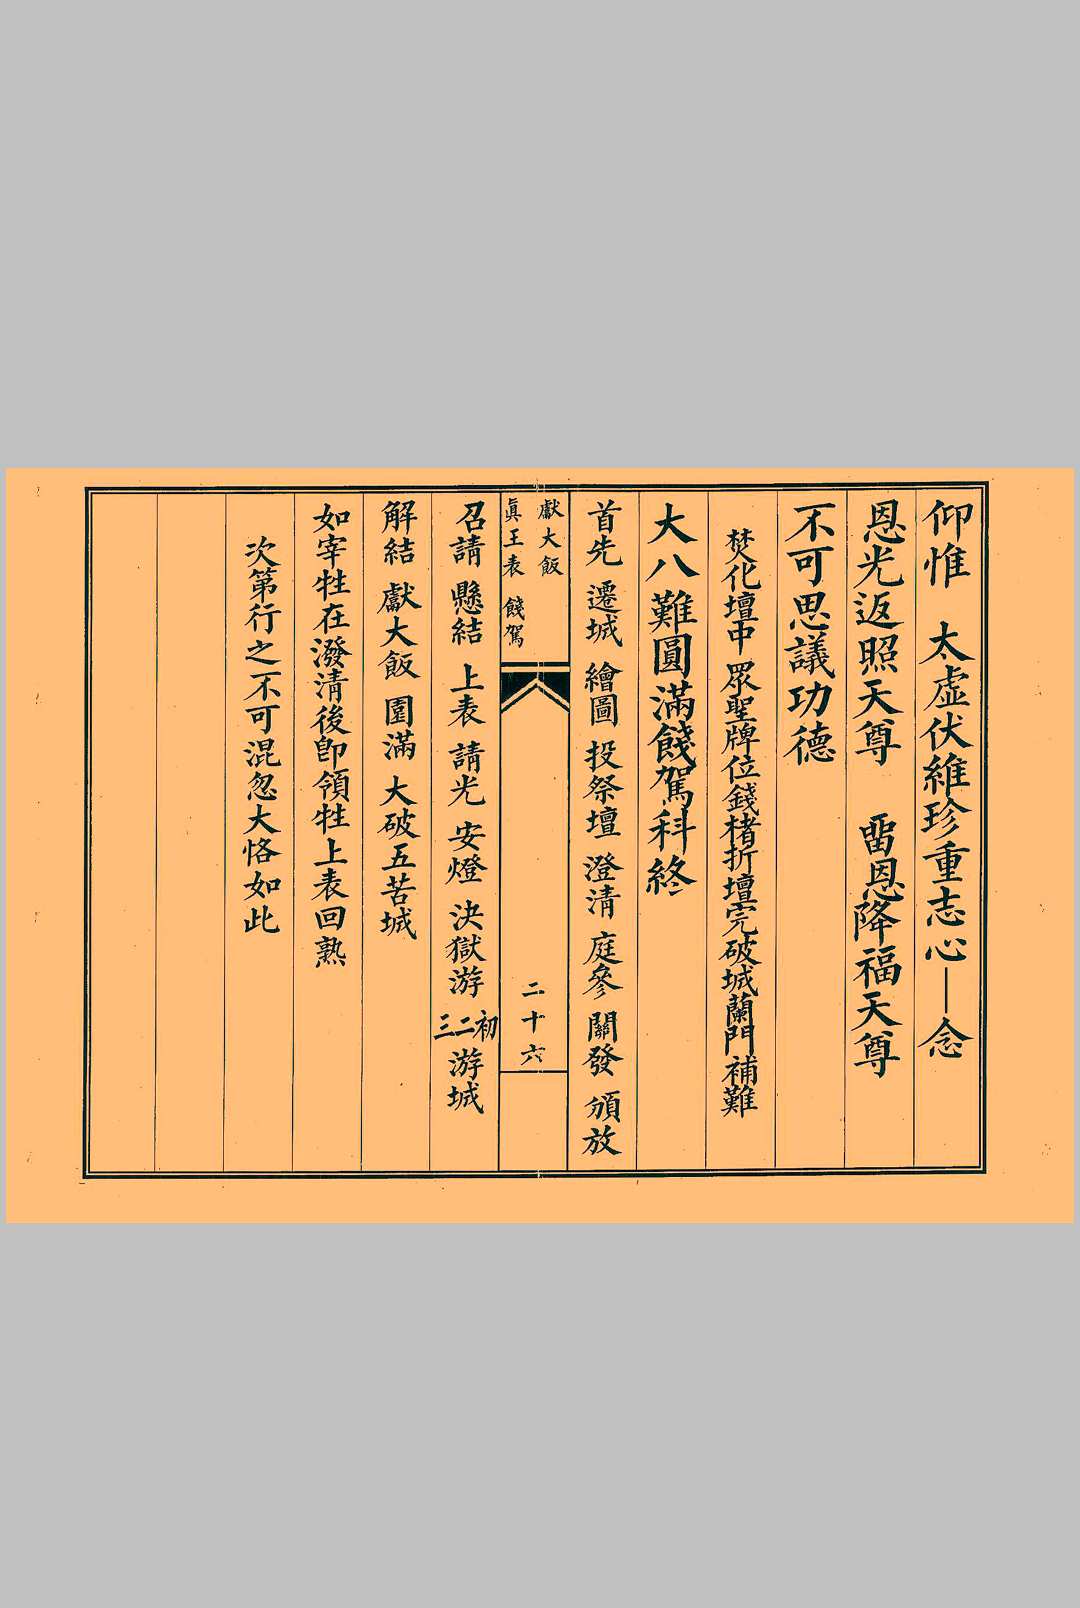 仰惟　太虛伏維珍重志心——念
恩光返照天尊　畱恩降福天尊
不可思議功德
焚化壇中　眾聖牌位錢楮折壇完破城蘭門補難
大八難圓滿餞駕科終
首先　遷城　繪圖　投祭壇　澄清　庭參　關發　頒放
獻大飯
眞王表　餞駕
二十六
召請　懸結　上表　請光　安燈　決獄游　初二三游城
解結　獻大飯　圓滿　大破五苦城
如宰牲在潑清後卽領牲上表回熟
次第行之不可混忽大恪如此